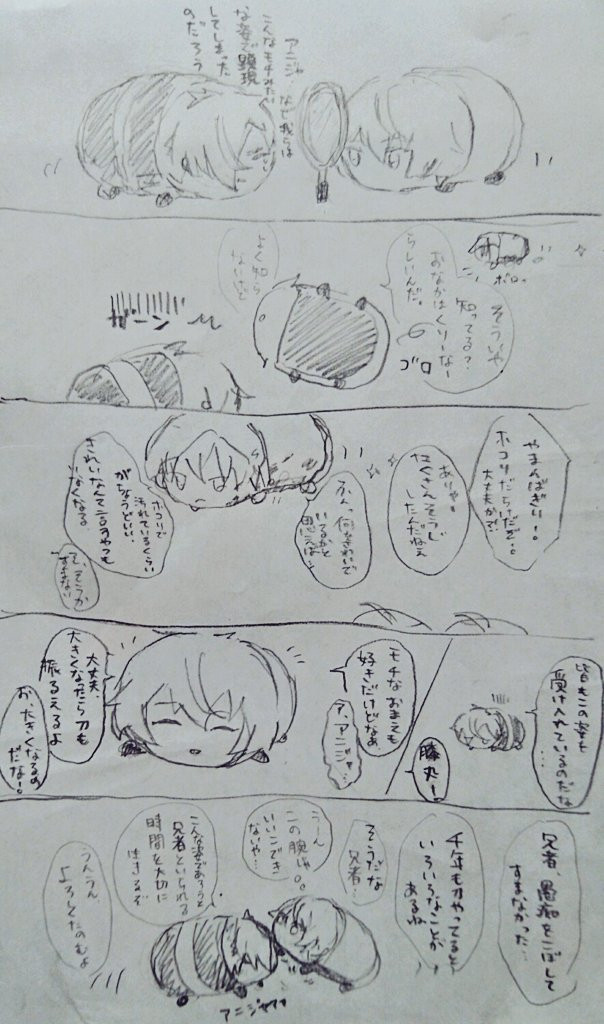 アニジャ なぜ我らは
こんなモチみたい
な姿で顕現
してしまった
のだろう
そういや
知ってる?
おなかはくりーなー
らしいんだ。
ポロッ
ゴロ
よく知ら
ないけど
ガーン
やまんばぎり!。
ホコリだらけだぞ!。
大丈夫かで!
ありゃ。
たくさんそうじ
したんだねぇ
ふんっ何をさわいで
いるかと
思えば…
ホコリで
汚れているくらい
がちょうどいい、
きれいなんて言うやつも
いなくなる
そ、そうか
すまない
皆もこの姿を
受け入れているのだな
…
膝丸ー
モチなおまえも
好きだけどなあ
ア、アニジャ…
大丈夫、
大きくなったら刀も
振るえるよ
お、大きくなるの
だな!。
兄者、愚痴をこぼして
すまなかった…
千年も刀やってると
いろいろなことが
あるね
そうだな
兄者…
うーん
この腕じゃ。。
いいこでき
ないや…
こんな姿であろうと
兄者といられる
時間を大切に
生きるぞ
うんうん、
よろしくたのむよ
アニジャァァ